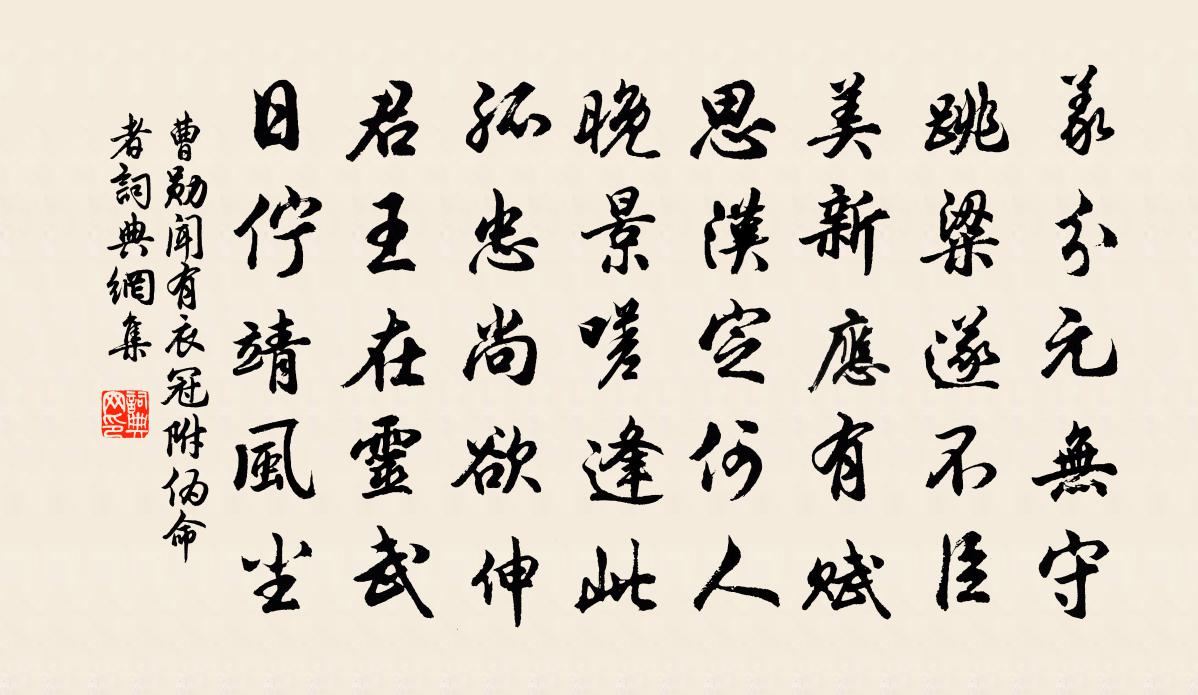 義分元無守
跳梁遂不臣
美新應有賦
思漢定何人
晚景嗟逢此
孤忠尚欲伸
君王在靈武
日佇靖風塵
曹勛聞有衣冠附偽命
者詞典網集
詞典网印